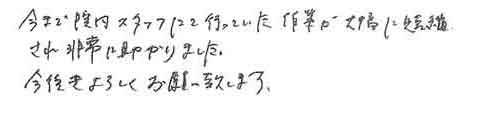 今まで院内スタッフにて行っていた作業が大幅に短縮
され非常に助かりました。
今後もよろしくお願い致します。